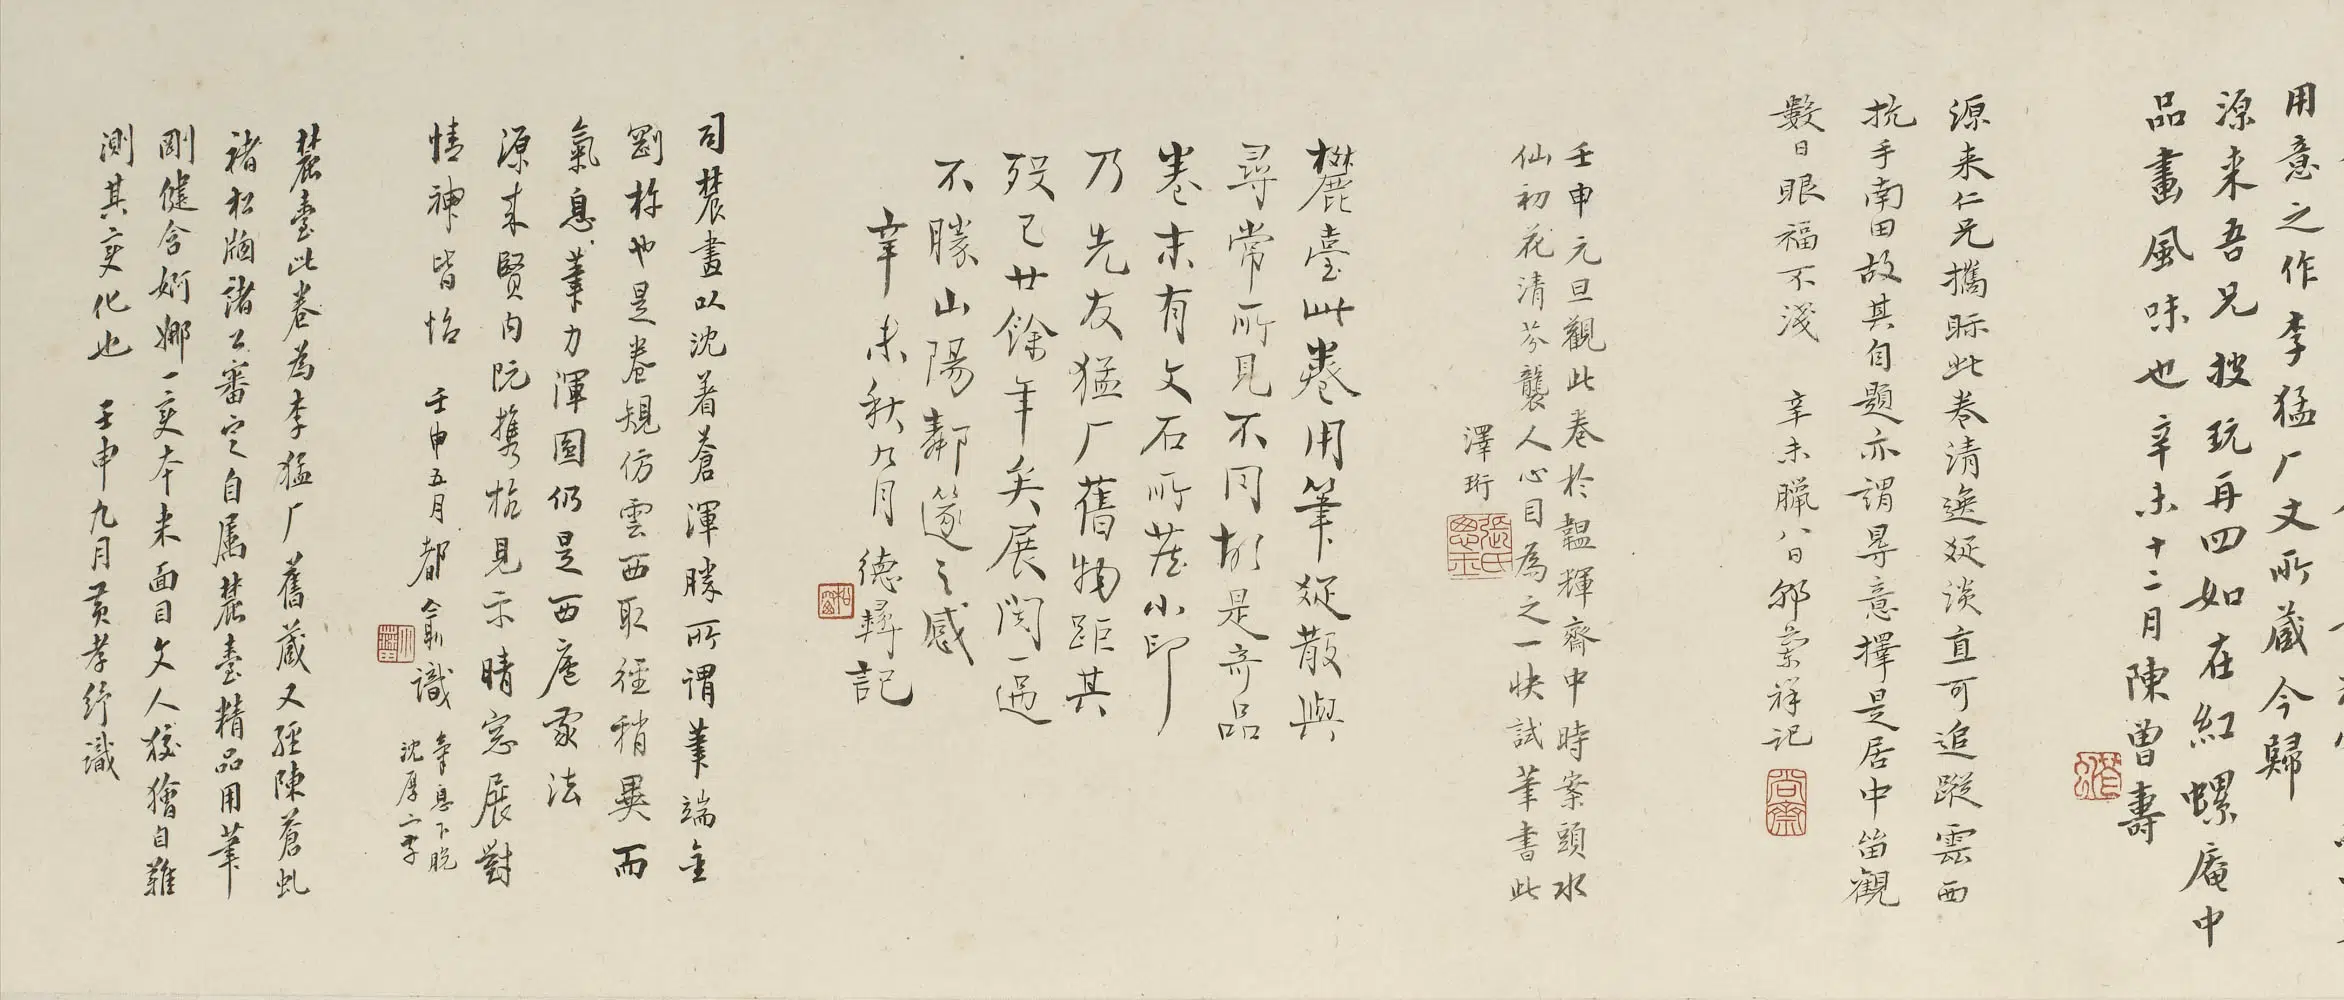 用意之作李猛厂丈所藏今歸
源来吾兄披玩再四如在紅螺庵中
品畫風味也辛未十二月陳曾壽
源来仁兄攜眎此卷清逸綖淡直可追蹤雲西
抗手南田故其自題亦謂尋意擇是居中笛觀
數日眼福不淺 辛未臘八日 祥記
壬申元旦觀此卷於韞輝齋中時案頭水
仙初花清芬襲人心目為之一快試筆書此
澤珩
麓臺此卷用筆綖散與
尋常所見不同故是奇品
卷末有文石所茬小印
乃先友猛厂舊物距其
歿已廿餘年矣展閱一過
不勝山陽鄰篴之感
辛未秋九月 德彝記
司農畫以沈着蒼渾勝所謂筆端金
剛杵也是卷規仿雲西取徑稍異而
氣息筆力渾圓仍是西廬家法
源来賢內阮攜枉見示晴窓展對
情神皆怡 壬申五月都俞識
氣息下脫
沈厚二字
麓臺此卷為李猛厂舊蔵又經陳蒼虬
褚松牕諸公審定自屬麓臺精品用筆
剛健含婀娜一变本来面目文人狡獪自難
測其变化也 壬申九月黃孝紓識